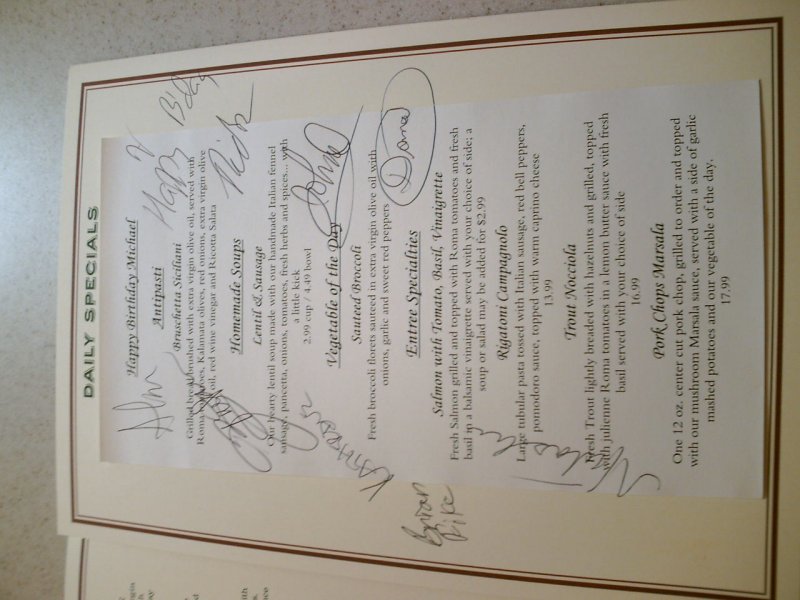 DAILY SPECIALS
Happy Birthday Michael
Antipasti
Bruschetta Siciliani
Grilled bread brushed with extra virgin olive oil, served with
Roma tomatoes, Kalamata olives, red onions, extra virgin olive
oil, red wine vinegar and Ricotta Salata
Homemade Soups
Lentil & Sausage
Our hearty lentil soup made with our handmade Italian fennel
sausage, pancetta, onions, tomatoes, fresh herbs and spices... with
a little kick
2.99 cup / 4.49 bowl
Vegetable of the Day
Sauteed Broccoli
Fresh broccoli florets sauteed in extra virgin olive oil with
onions, garlic and sweet red peppers
Entree Specialties
Salmon with Tomato, Basil, Vinaigrette
Fresh Salmon grilled and topped with Roma tomatoes and fresh
basil in a balsamic vinaigrette served with your choice of side; a
soup or salad may be added for $2.99
Rigatoni Campagnolo
Large tubular pasta tossed with Italian sausage, red bell peppers,
pomodoro sauce, topped with warm caprino cheese
13.99
Trout Nocciola
Fresh Trout lightly breaded with hazelnuts and grilled, topped
with julienne Roma tomatoes in a lemon butter sauce with fresh
basil served with your choice of side
16.99
Pork Chops Marsala
One 12 oz. center cut pork chop, grilled to order and topped
with our mushroom Marsala sauce, served with a side of garlic
mashed potatoes and our vegetable of the day.
17.99
Happy Bday
Rich
John
Dana
Brian